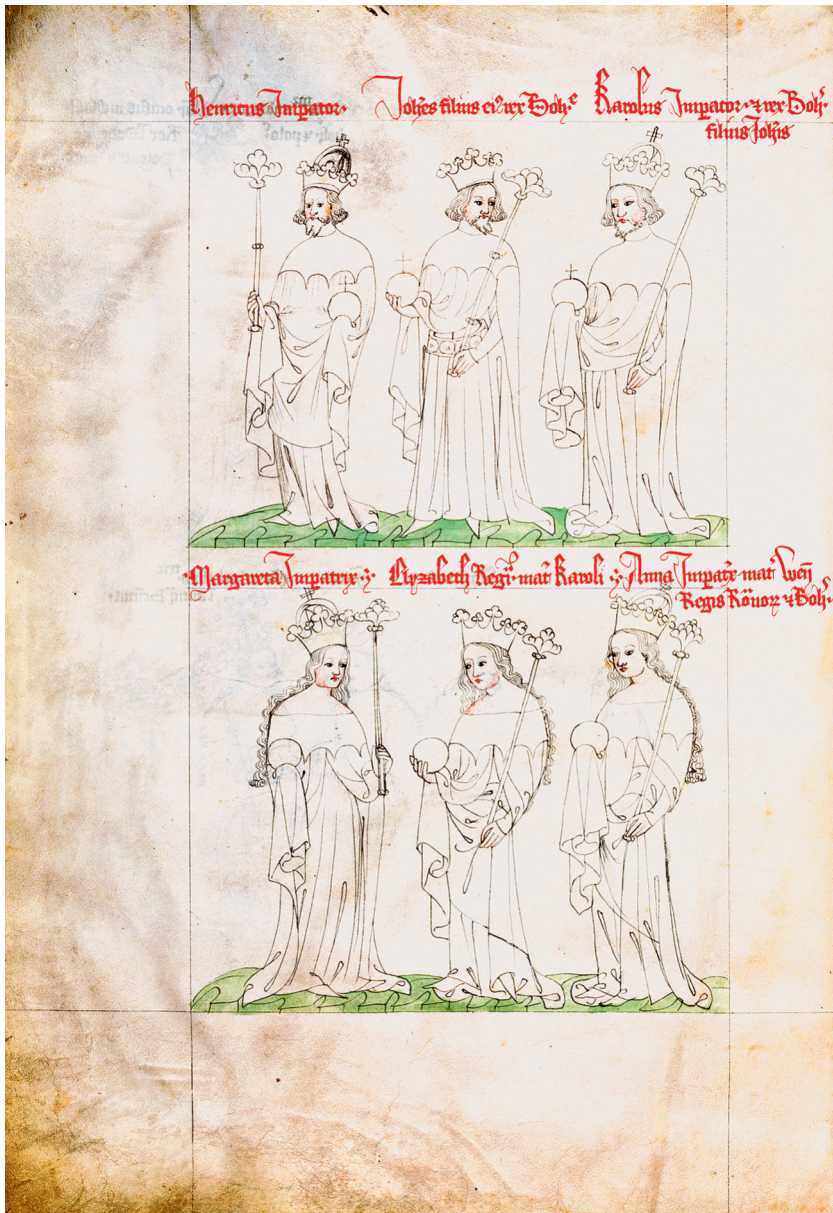 Henricus Imp̄ator· Joh̄es filius eiꝰ rex Boh̄e Karolus Imp̄ator· ⁊ rex Boh̄·
filius Joh̄is
Margareta Imp̄atrix Elyzabeth Regī· mat̄ Karoli Anna Imp̄at̄x mat̄ Wen̄
Regis Rōnoꝝ ⁊ Boh̄·